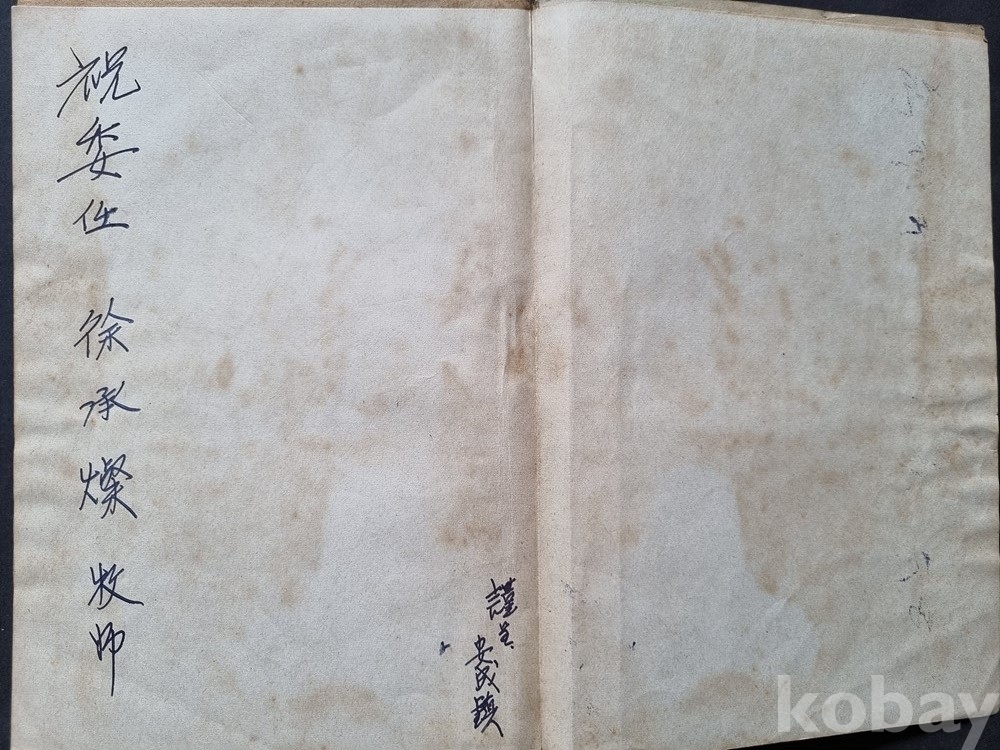 祝委任 徐承燦 牧师
謹呈
安成鎮
kobay